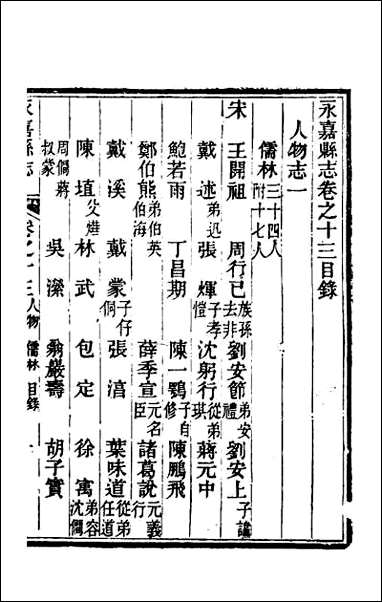 永嘉縣志卷之十三目錄
人物志一
儒林三十四人附十七人
宋 王開祖 周行己族孫去非 劉安節弟安禮 劉安上子
戴述弟迅 張煇子孝愷 沈躬行從弟琪 蔣元中
鮑若雨 丁昌期 陳一鶚子自修 陳鵬飛
鄭伯熊弟伯英伯海 薛季宣元名臣 諸葛說元義行
戴溪 戴蒙子仔侗 張淳 葉味道從弟任道
陳埴父 林武 包定 徐寓弟容沈僩
周僩蔣叔蒙 吳溁 翁巖壽 胡子實
永嘉縣志 卷之十三 人物 儒林 目錄 一